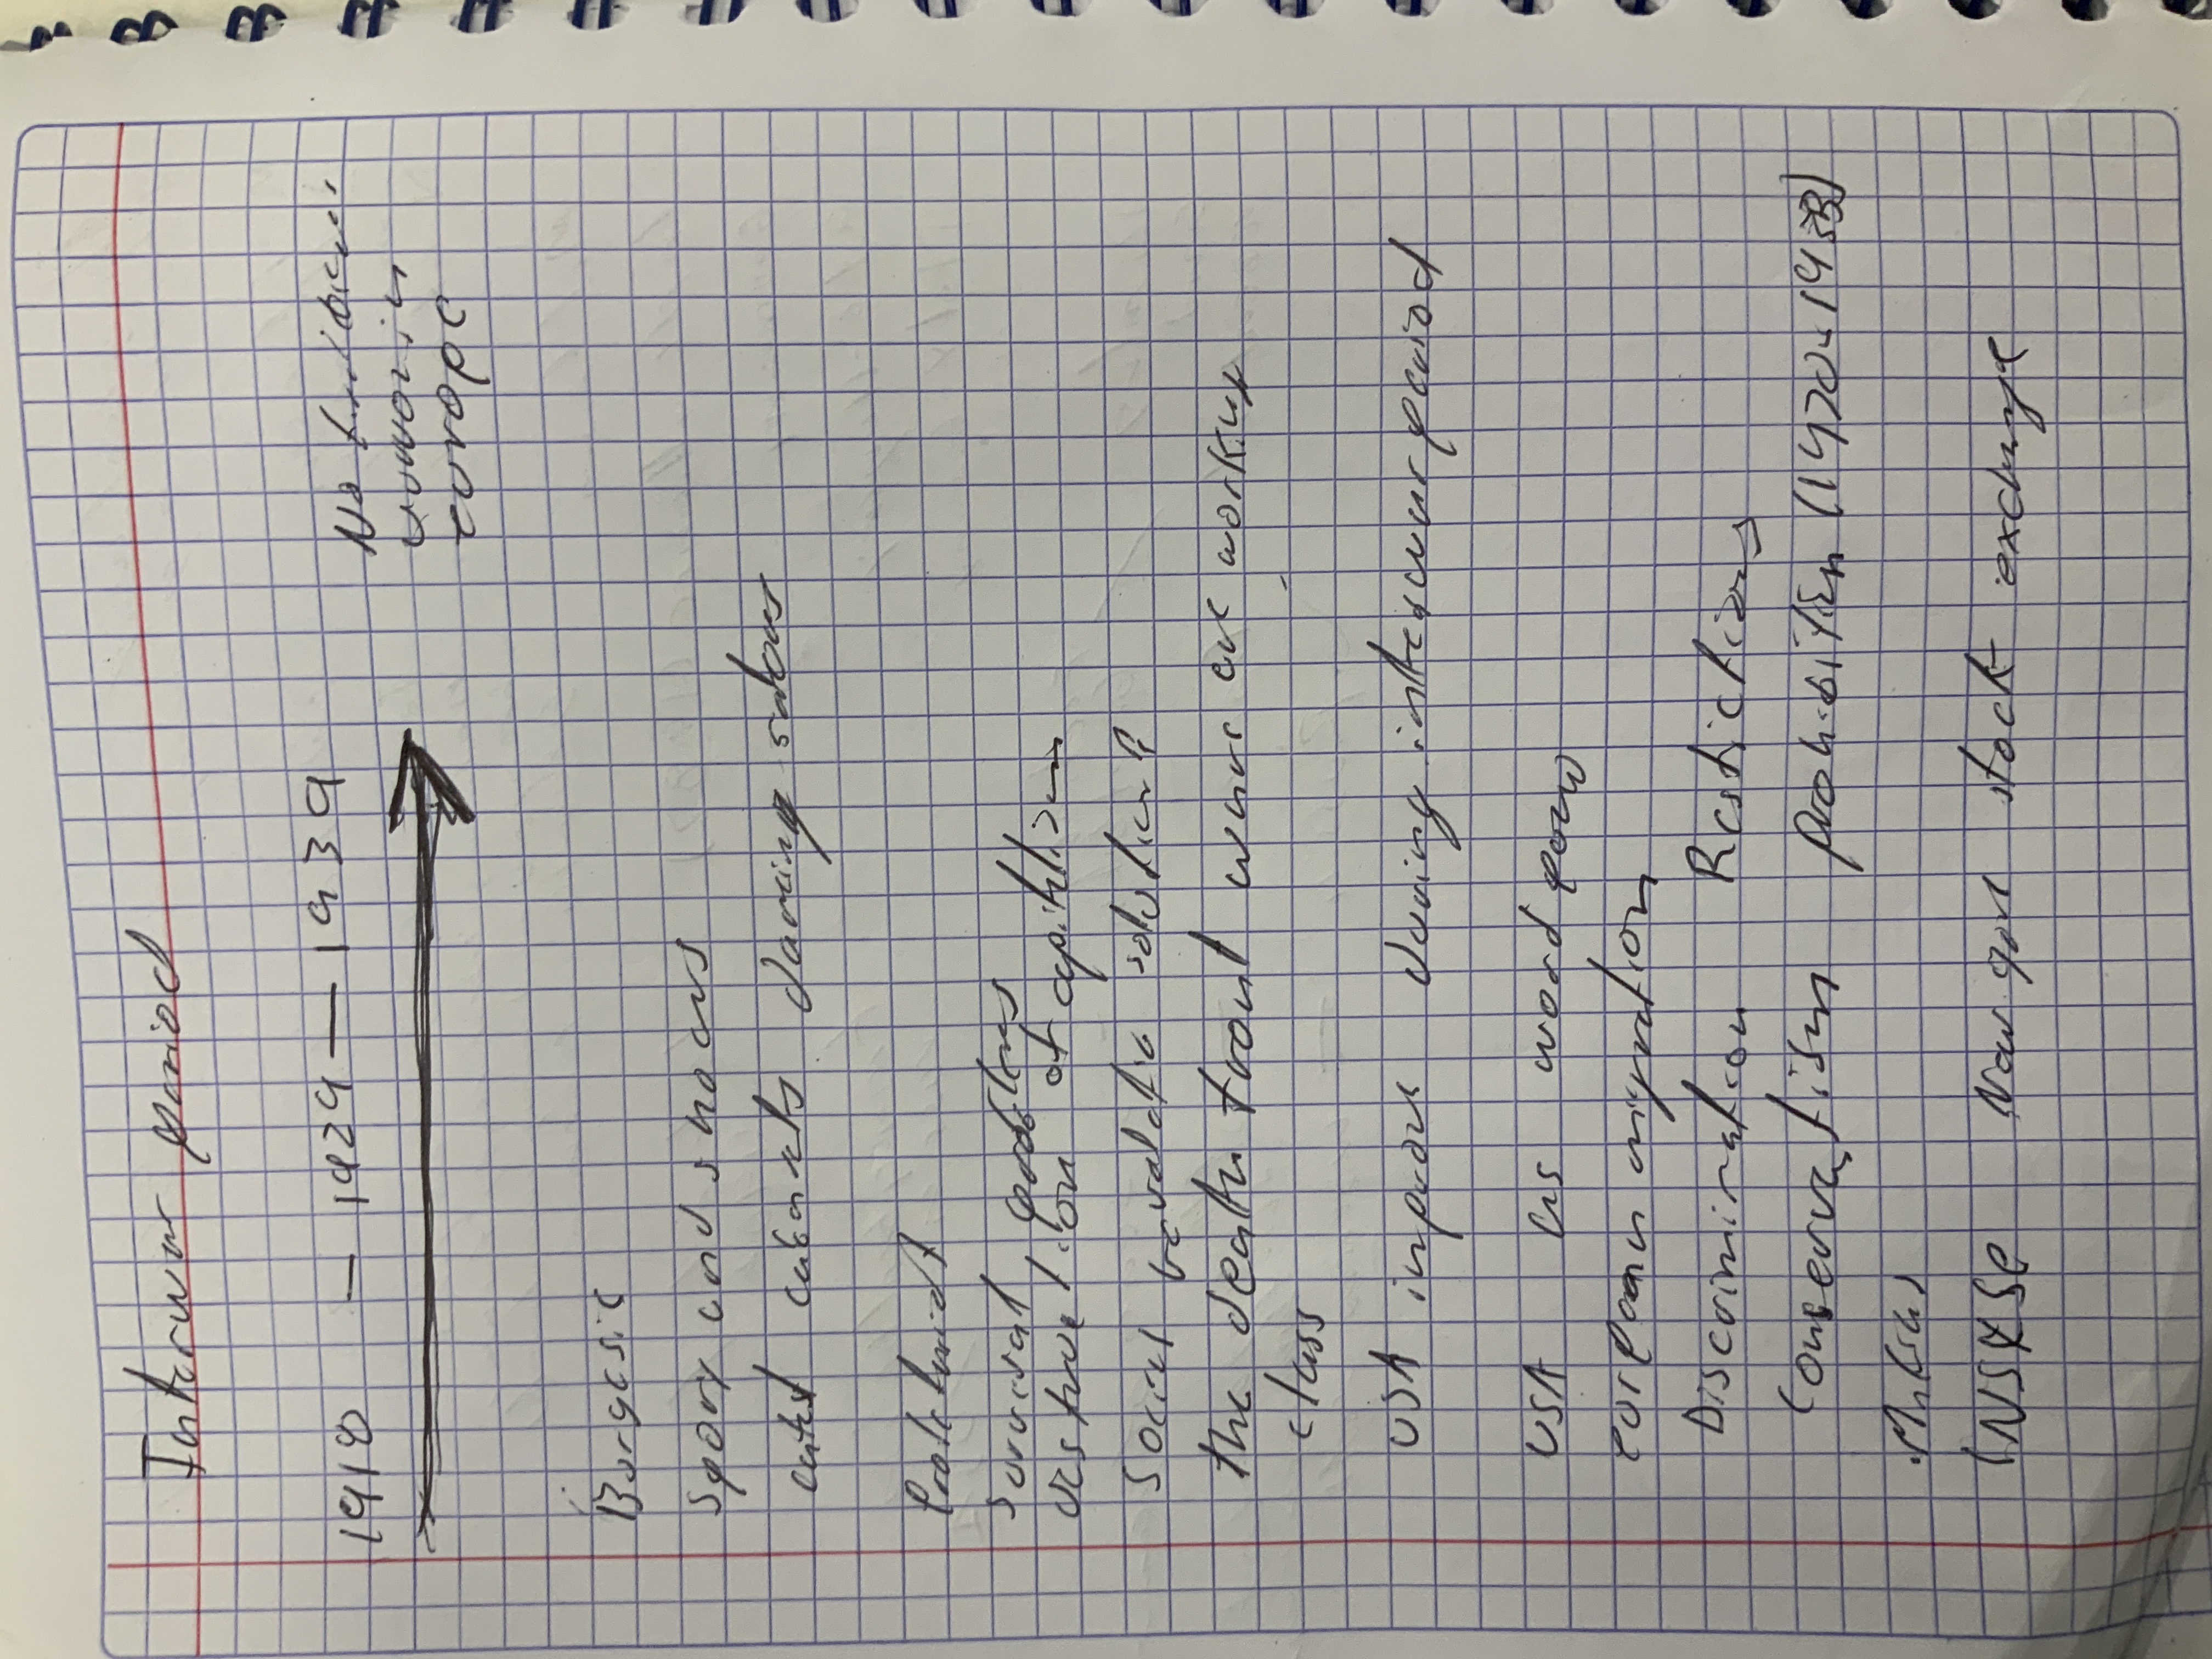 Interwar period
1918 - 1929 — 1939
No
in
europe
Borgesie
Sport and shows
cabarets dancing salons
Proletariat
Survival, problems
destruction of capitalism
Social solution?
the death front wars are working
class
USA improve during interwar period
USA as word power
migration
Discrimination Restictions
Conservatism prohibition (1920-1933)
Mafias
stock exchange